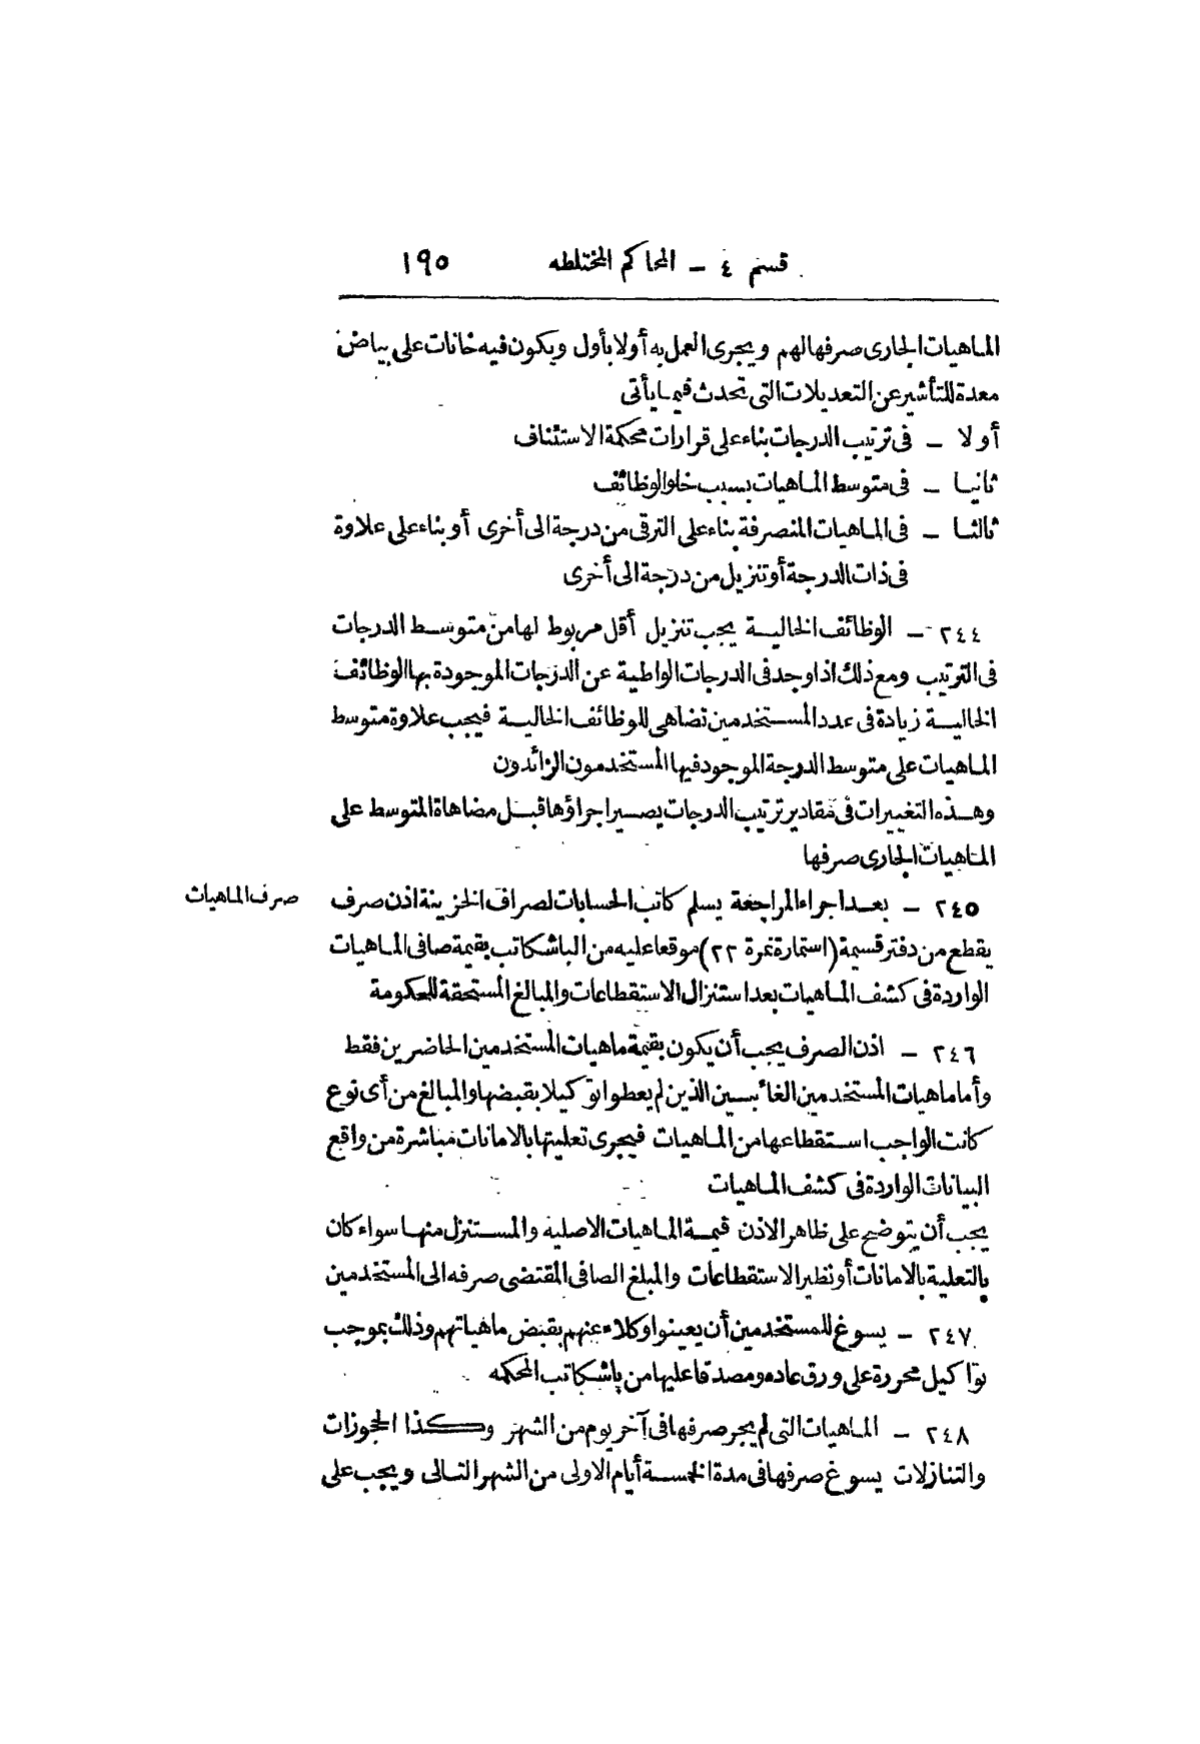 قسم ٤ – المحاكم المختلطه ١٩٥
الماهيات الجارى صرفها لهم ويجرى العمل به أولا بأول ويكون فيه خانات على بياض
معدة للتأشير عن التعديلات التى تحدث فيما يأتى
أولا – فى ترتيب الدرجات بناء على قرارات محكمة الاستئناف
ثانيا – فى متوسط الماهيات بسبب خلو الوظائف
ثالثا – فى الماهيات المنصرفة بناء على الترقى من درجة الى أخرى أو بناء على علاوة
فى ذات الدرجة أو تنزيل من درجة الى أخرى
٢٤٤ – الوظائف الخالية يجب تنزيل أقل مربوط لها من متوسط الدرجات
فى الترتيب ومع ذلك اذا وجد فى الدرجات الواطية عن الدرجات الموجودة بها الوظائف
الخالية زيادة فى عدد المستخدمين تضاهى للوظائف الخالية فيجب علاوة متوسط
الماهيات على متوسط الدرجة الموجود فيها المستخدمون الزائدون
وهذه التغييرات فى مقادير ترتيب الدرجات يصير اجراؤها قبل مضاهاة المتوسط على
الماهيات الجارى صرفها
صرف الماهيات
٢٤٥ – بعد اجراء المراجعة يسلم كاتب الحسابات لصراف الخزينة اذن صرف
يقطع من دفتر قسيمة (استمارة نمرة ٢٢) موقعا عليه من الباشكاتب بقيمة صافى الماهيات
الواردة فى كشف الماهيات بعد استنزال الاستقطاعات والمبالغ المستحقة للحكومة
٢٤٦ – اذن الصرف يجب أن يكون بقيمة ماهيات المستخدمين الحاضرين فقط
وأما ماهيات المستخدمين الغائبين الذين لم يعطوا توكيلا بقبضها والمبالغ من أى نوع
كانت الواجب استقطاعها من الماهيات فيجرى تعليتها بالامانات مباشرة من واقع
البيانات الواردة فى كشف الماهيات
يجب أن يتوضح على ظاهر الاذن قيمة الماهيات الاصليه والمستنزل منها سواء كان
بالتعلية بالامانات أو نظير الاستقطاعات والمبلغ الصافى المقتضى صرفه الى المستخدمين
٢٤٧ – يسوغ للمستخدمين أن يعينوا وكلاء عنهم بقبض ماهياتهم وذلك بموجب
تواكيل محررة على ورق عاده ومصدقا عليها من باشكاتب المحكمه
٢٤٨ – الماهيات التى لم يجر صرفها فى آخر يوم من الشهر وكذا الحجوزات
والتنازلات يسوغ صرفها فى مدة الخمسة أيام الاولى من الشهر التالى ويجب على